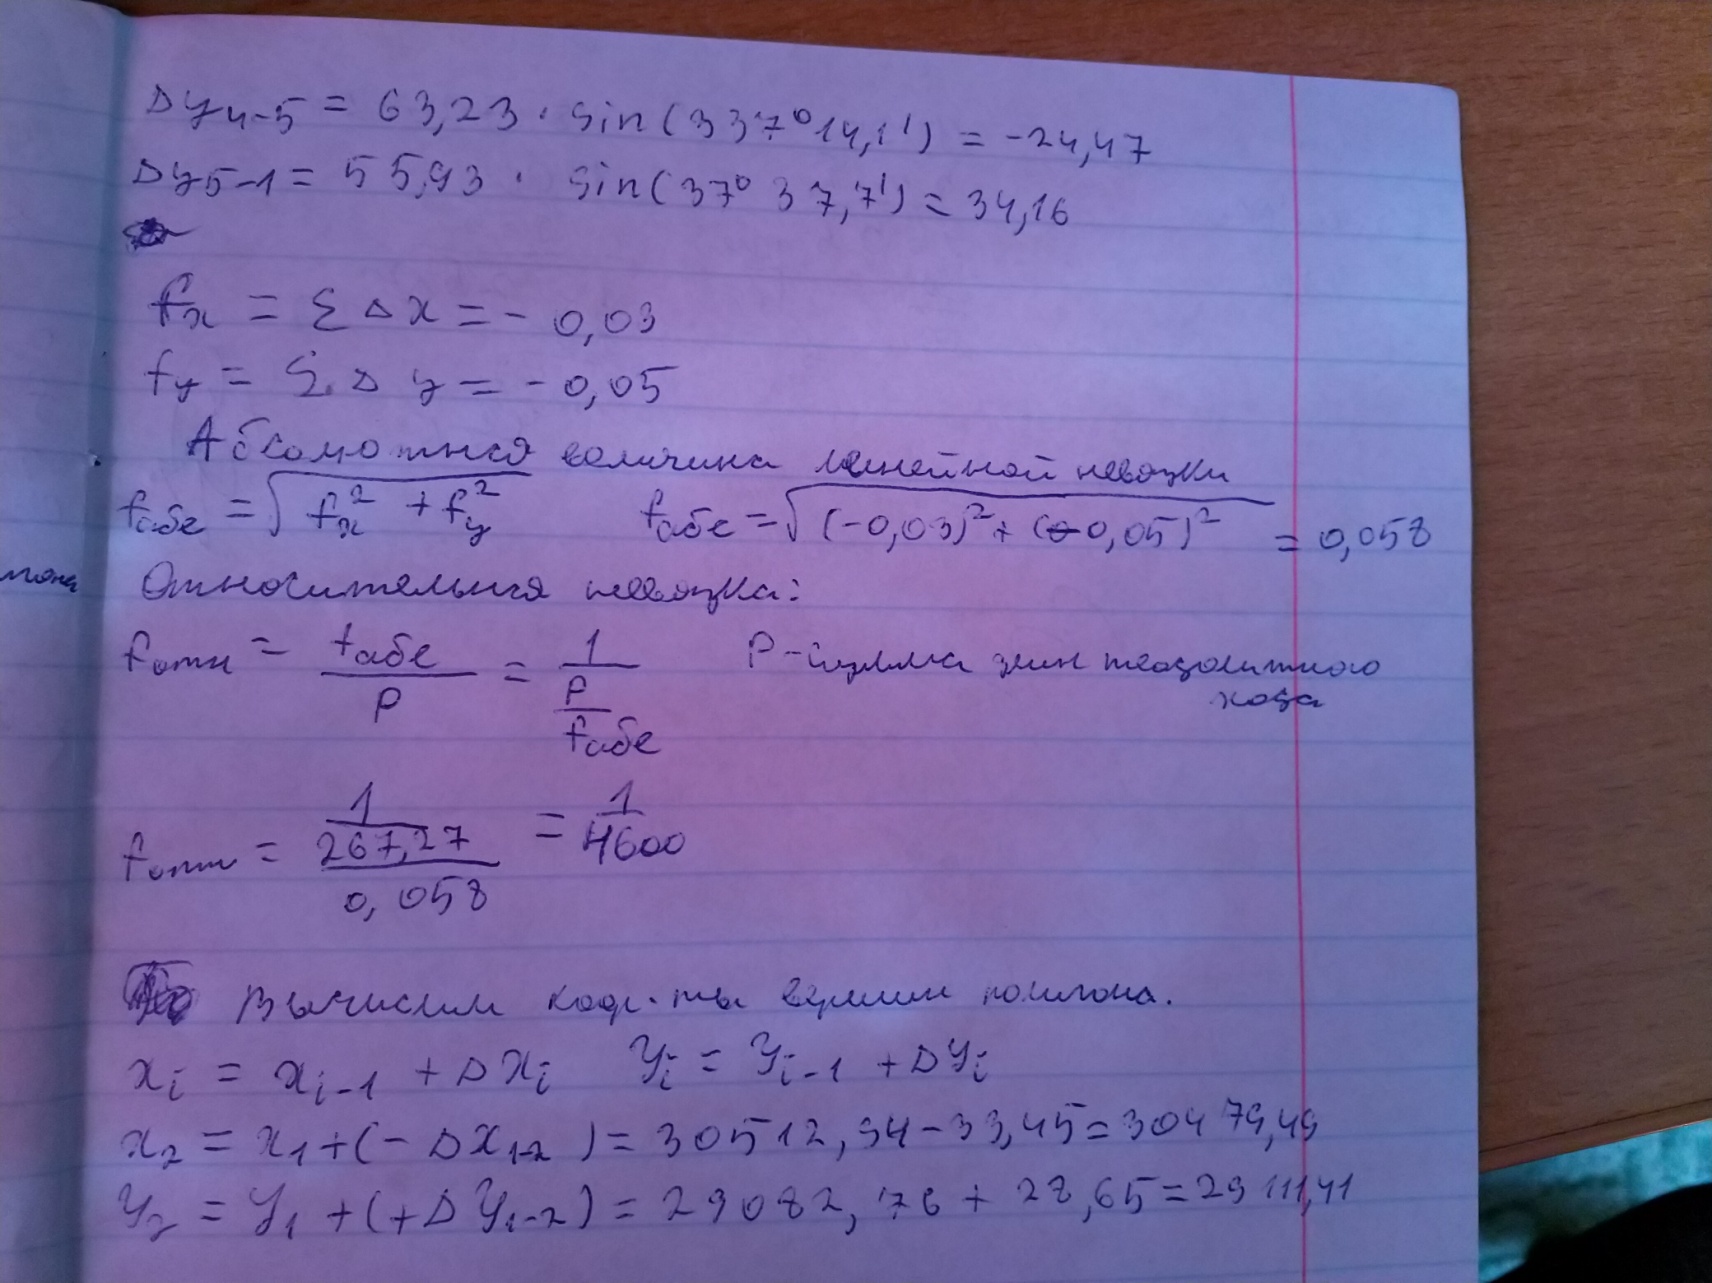 Δy₄₋₅ = 63,23 · sin(337°14,1') = -24,47
Δy₅₋₁ = 55,93 · sin(37° 37,7') = 34,16
fx = Σ Δx = - 0,03
fy = Σ Δy = - 0,05
Абсолютная величина линейной невязки
fабс = √(fx² + fy²) fабс = √((-0,03)² + (-0,05)²) = 0,058
Относительная невязка:
fотн = fабс / P = 1 / (P / fабс) P - сумма длин теодолитного
хода
fотн = 1 / (267,27 / 0,058) = 1 / 4600
Вычислим коор-ты вершин полигона.
xi = xi-1 + Δxi yi = yi-1 + Δyi
x₂ = x₁ + (- Δx₁₋₂) = 30512,94 - 33,45 = 30479,49
y₂ = y₁ + (+Δy₁₋₂) = 29082,76 + 28,65 = 29111,41